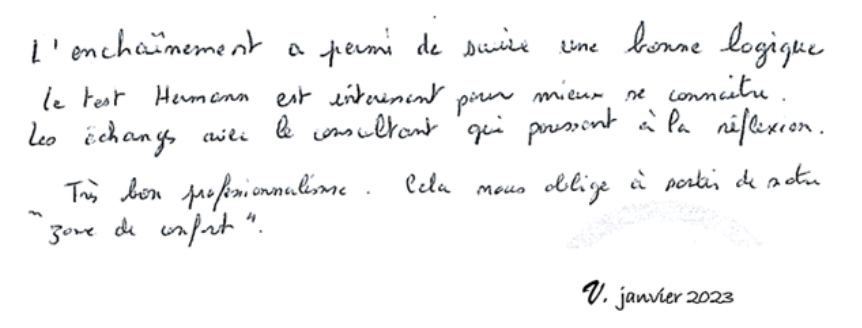 L'enchaînement a permi de suivre une bonne logique
le test Hermann est intéressant pour mieux se connaître.
Les échanges avec le consultant qui poussent à la réflexion.
Très bon professionnalisme. Cela nous oblige à sortir de notre
"zone de confort".
V. janvier 2023